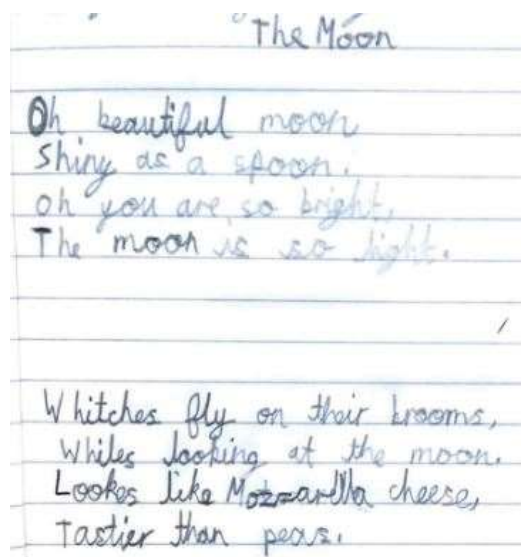 The Moon
Oh beautiful moon
Shiny as a spoon.
Oh you are so bright,
The moon is so light.
Whitches fly on their brooms,
Whiles looking at the moon.
Lookes like Mozzarella cheese,
Tastier than peas.